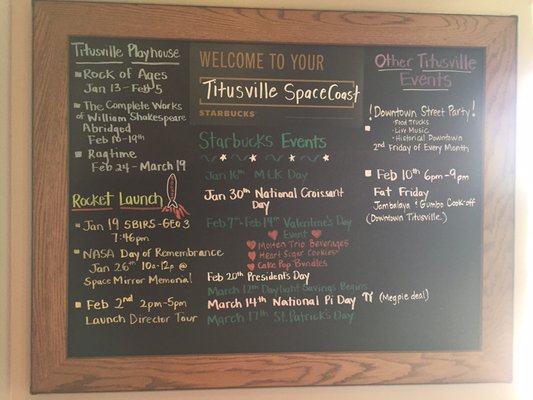 Titusville Playhouse
Rock of Ages
Jan 13 - Feb 5
The Complete Works
of William Shakespeare
Abridged
Feb 10-19th
Ragtime
Feb 24 - March 19
Rocket Launch
Jan 19 SBIRS-GEO 3
7:46pm
NASA Day of Remembrance
Jan 26th 10a-12p @
Space Mirror Memorial
Feb 2nd 2pm-5pm
Launch Director Tour
WELCOME TO YOUR
Titusville SpaceCoast
STARBUCKS
Starbucks Events
Jan 16th MLK Day
Jan 30th National Croissant
Day
Feb 7th-Feb 14th Valentine's Day
Event
Molten Trio Beverages
Heart Sugar Cookies
Cake Pop Bundles
Feb 20th President's Day
March 12th Daylight Savings Begins
March 14th National Pi Day π (Megpie deal)
March 17th St. Patrick's Day
Other Titusville
Events
!Downtown Street Party!
· Food Trucks
· Live Music
· Historical Downtown
2nd Friday of Every Month
Feb 10th 6pm-9pm
Fat Friday
Jambalaya & Gumbo Cook-off
(Downtown Titusville)